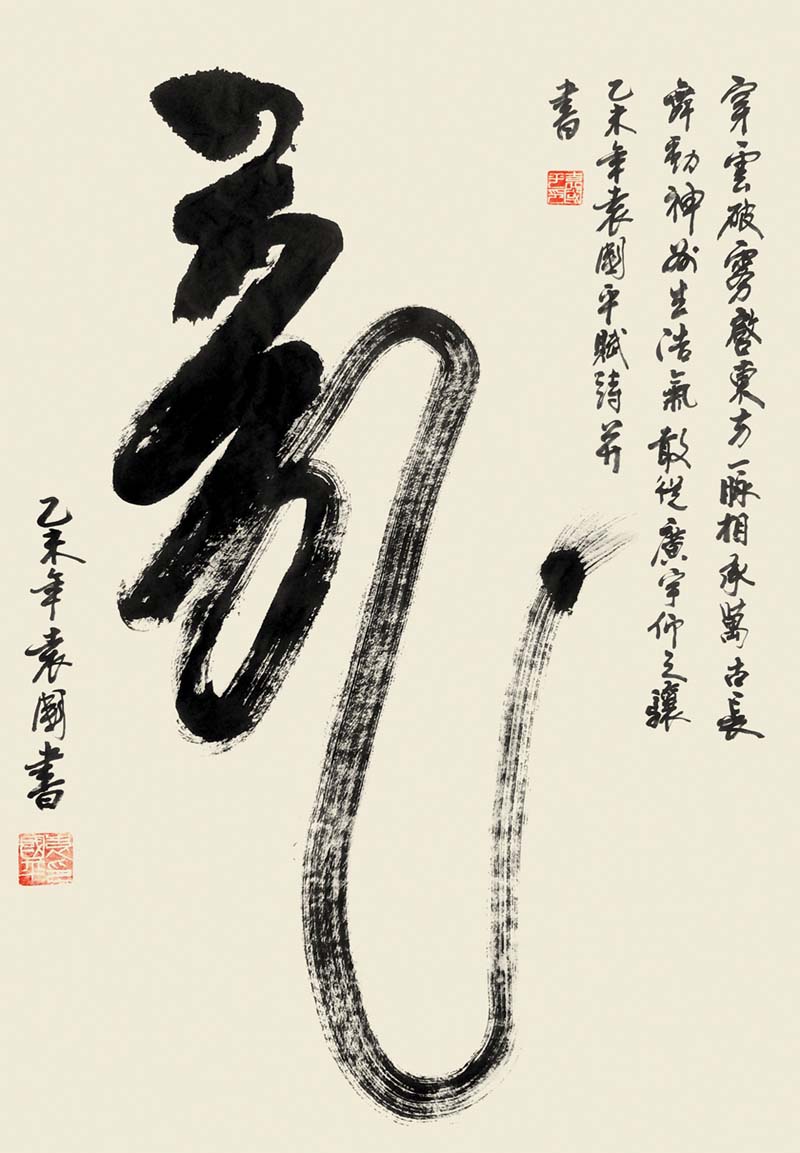 穿雲破霧啓東方一脈相承萬古長
舞動神州生浩氣敢從廣宇仰之驤
乙未年袁國平賦詩并
書
龍
乙未年袁國書
袁印國平